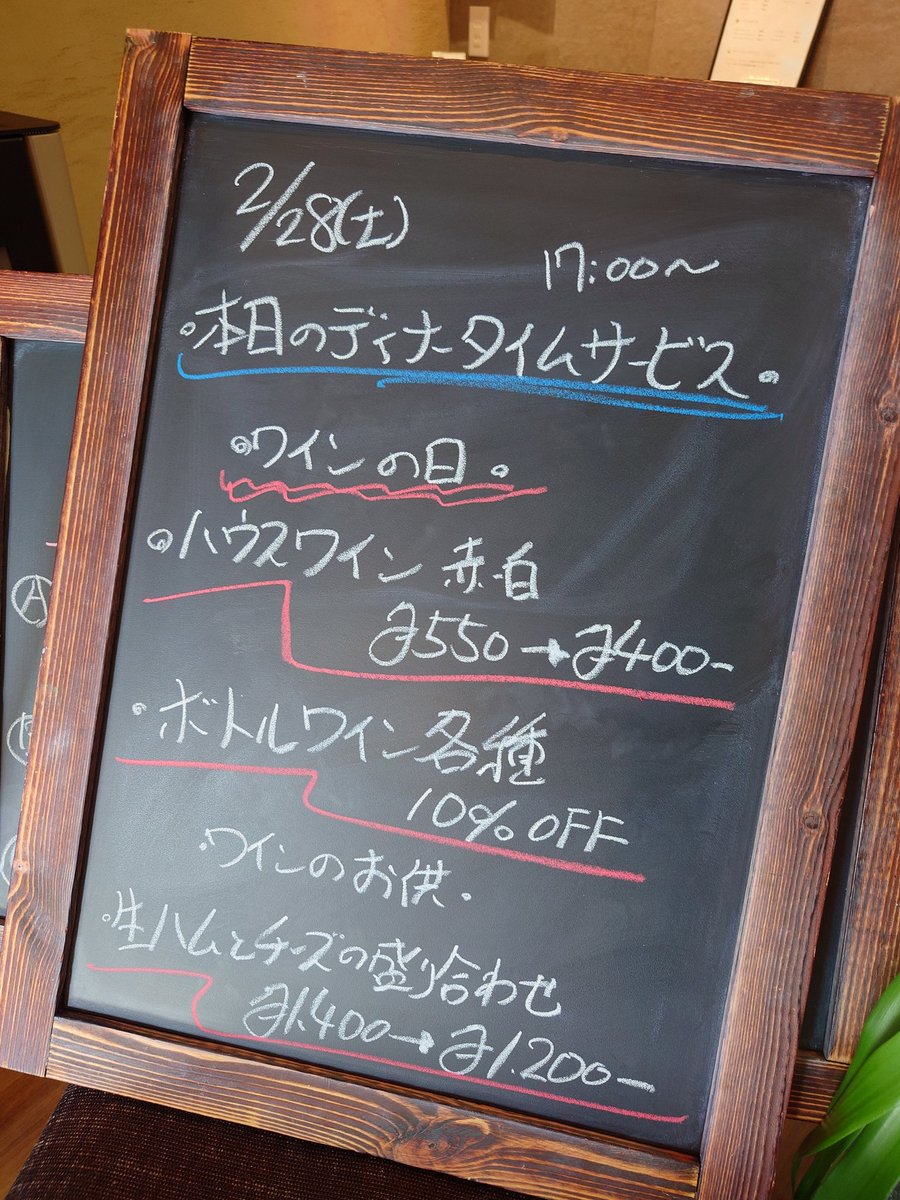 2/28(土)
17:00〜
・本日のディナータイムサービス。
◎ワインの日。
◎ハウスワイン 赤・白
¥550→¥400-
・ボトルワイン各種
10%OFF
・ワインのお供・
・生ハムとチーズの盛り合わせ
¥1.400→¥1.200-
Ⓐ